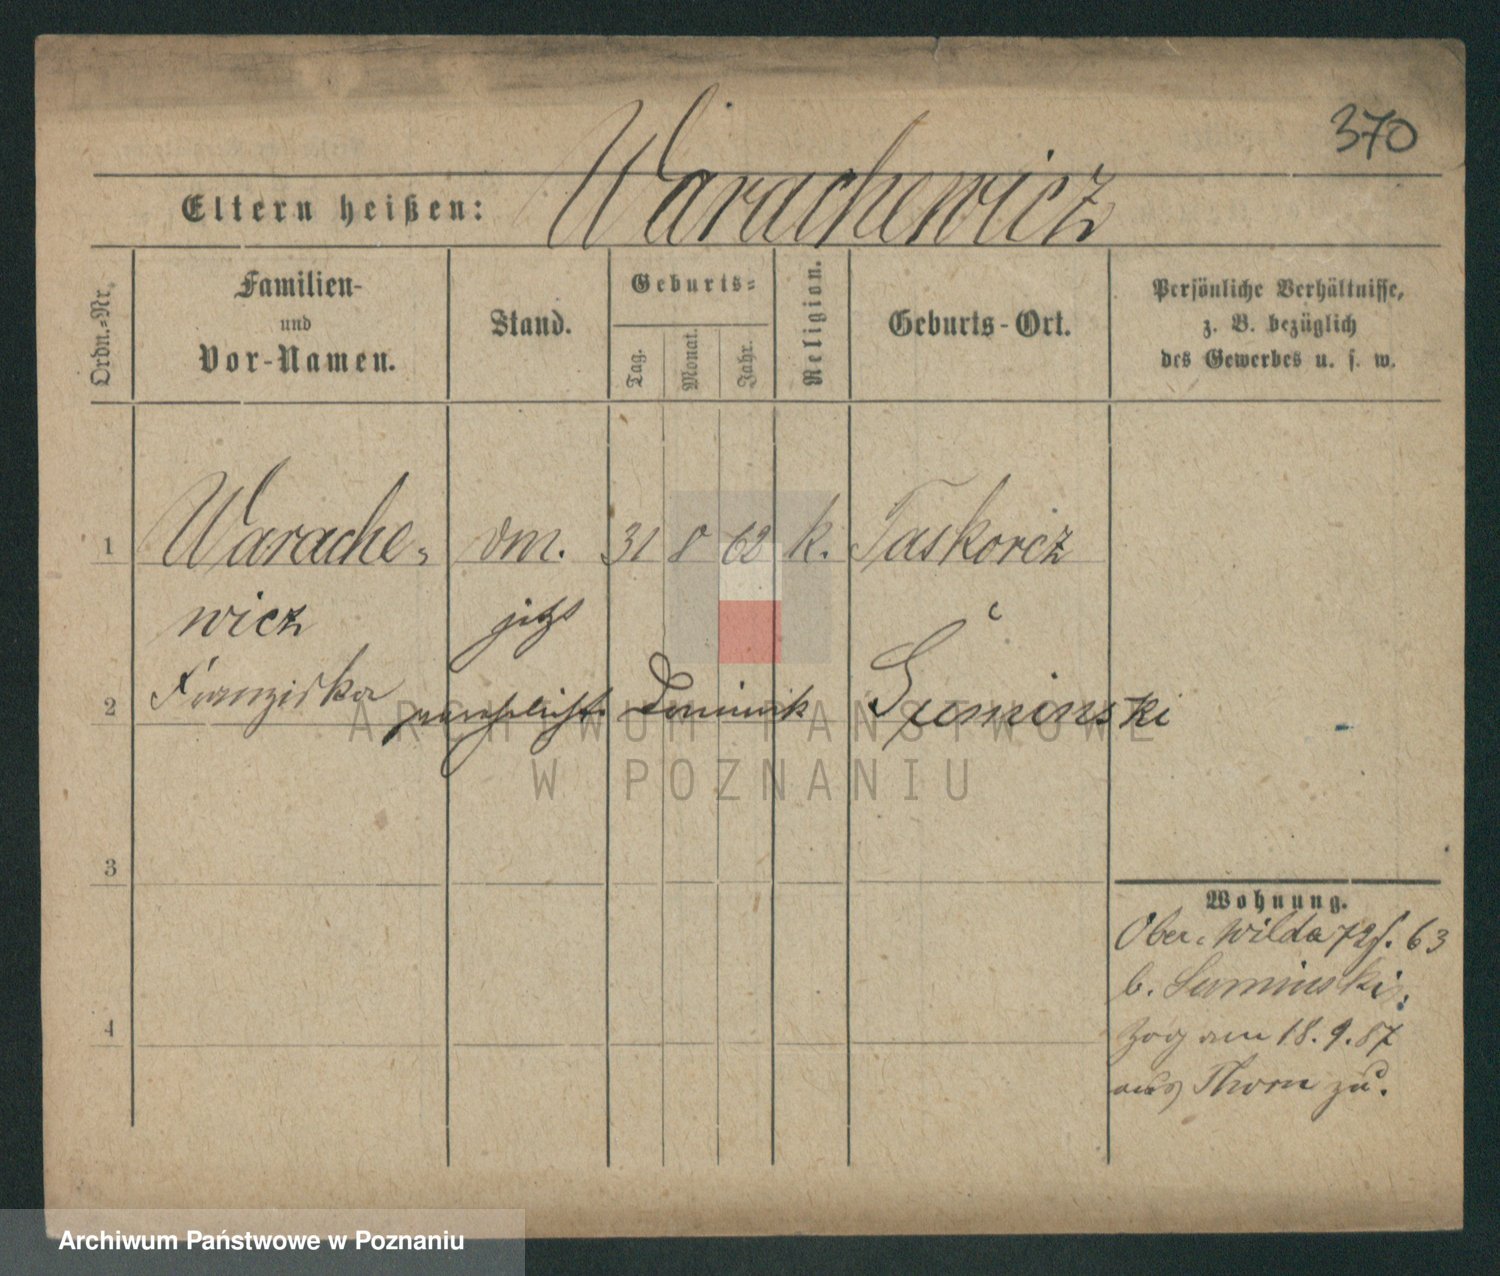 370
Warachewicz
Eltern heißen:
Ordn.=Nr.
Familien-
und
Vor-Namen.
Stand.
Geburts=
Tag.
Monat.
Jahr.
Religion.
Geburts-Ort.
Persönliche Verhältnisse,
z. B. bezüglich
des Gewerbes u. s. w.
1 Warache- 31 8 62 k. Taskorcz
wicz jetzt
2 Franziska verehelicht. Dominik Suminski
3
4
Wohnung.
Ober-Wilda 72 f. 63
b. Suminski,
Zog am 18.9.87
aus Thorn zu.
ARCHIWUM PAŃSTWOWE
W POZNANIU
Archiwum Państwowe w Poznaniu